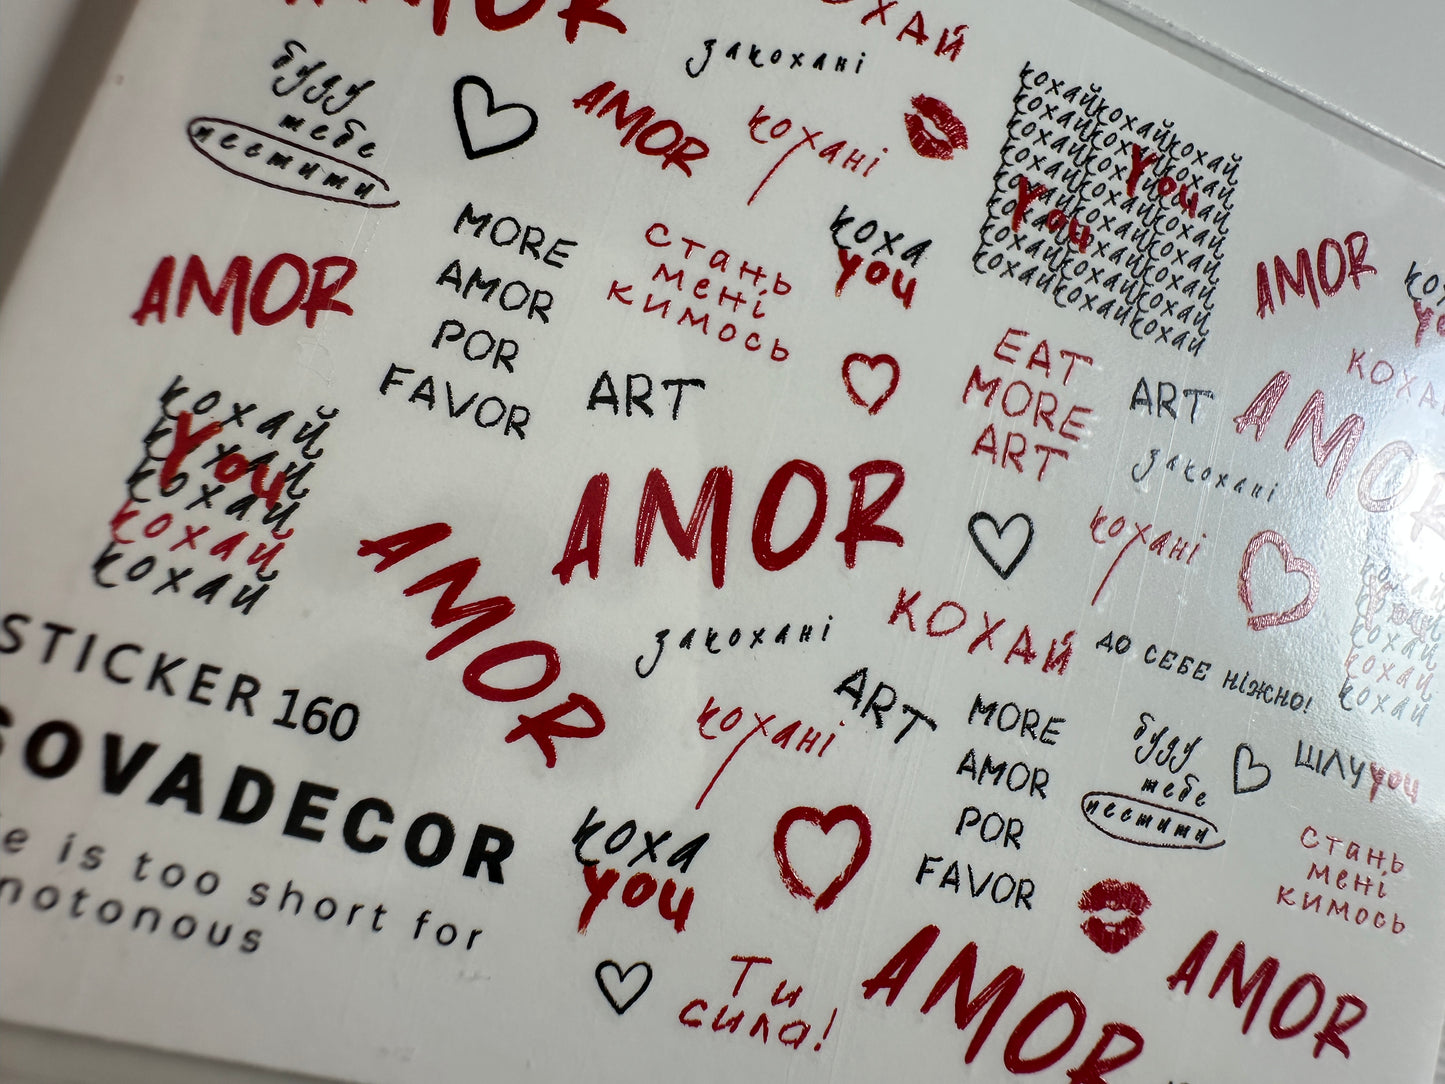 AMOR
КОХАЙ
закохані
буду
тебе
пестити
AMOR
кохані
кохайкохайкохай
кохайкохайкохай
кохайкохайкохай
кохайкохайкохай
кохайкохайкохай
кохайкохайкохай
кохайкохайкохай
кохайкохайкохай
You
You
MORE
AMOR
POR
FAVOR
стань
мені
кимось
коха
you
AMOR
AMOR
EAT
MORE
ART
ART
ART
кохай
кохай
кохай
кохай
кохай
You
AMOR
закохані
AMOR
AMOR
кохані
закохані
КОХАЙ
ДО СЕБЕ НІЖНО!
STICKER 160
SOVADECOR
is too short for
кохані
ART
MORE
AMOR
POR
FAVOR
буду
тебе
пестити
ШЛУyou
кохай
кохай
кохай
кохай
кохай
You
коха
you
стань
мені
кимось
Ти
сила!
AMOR
AMOR